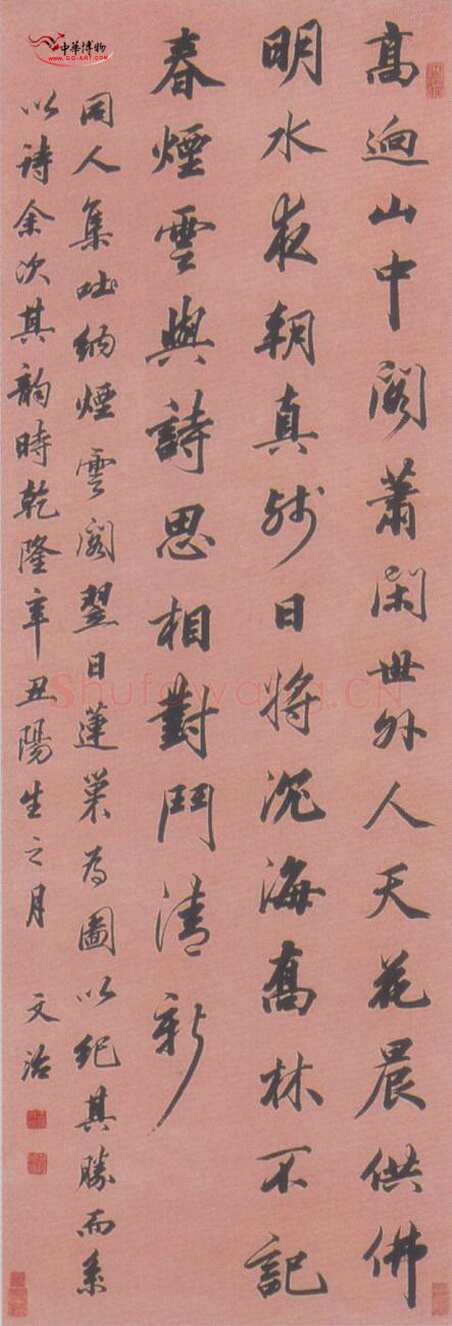 高迥山中阁萧闲世外人天花晨供佛
明水夜朝真残日将沉海高林不记
春煙雲與詩思相對鬥清新
同人集吐纳煙雲阁翌日蓮巢为圖以纪其勝而系
以诗余次其韵時乾隆辛丑陽生之月 文治
中華博物
WWW.GG-ART.COM
Shufawang.CN